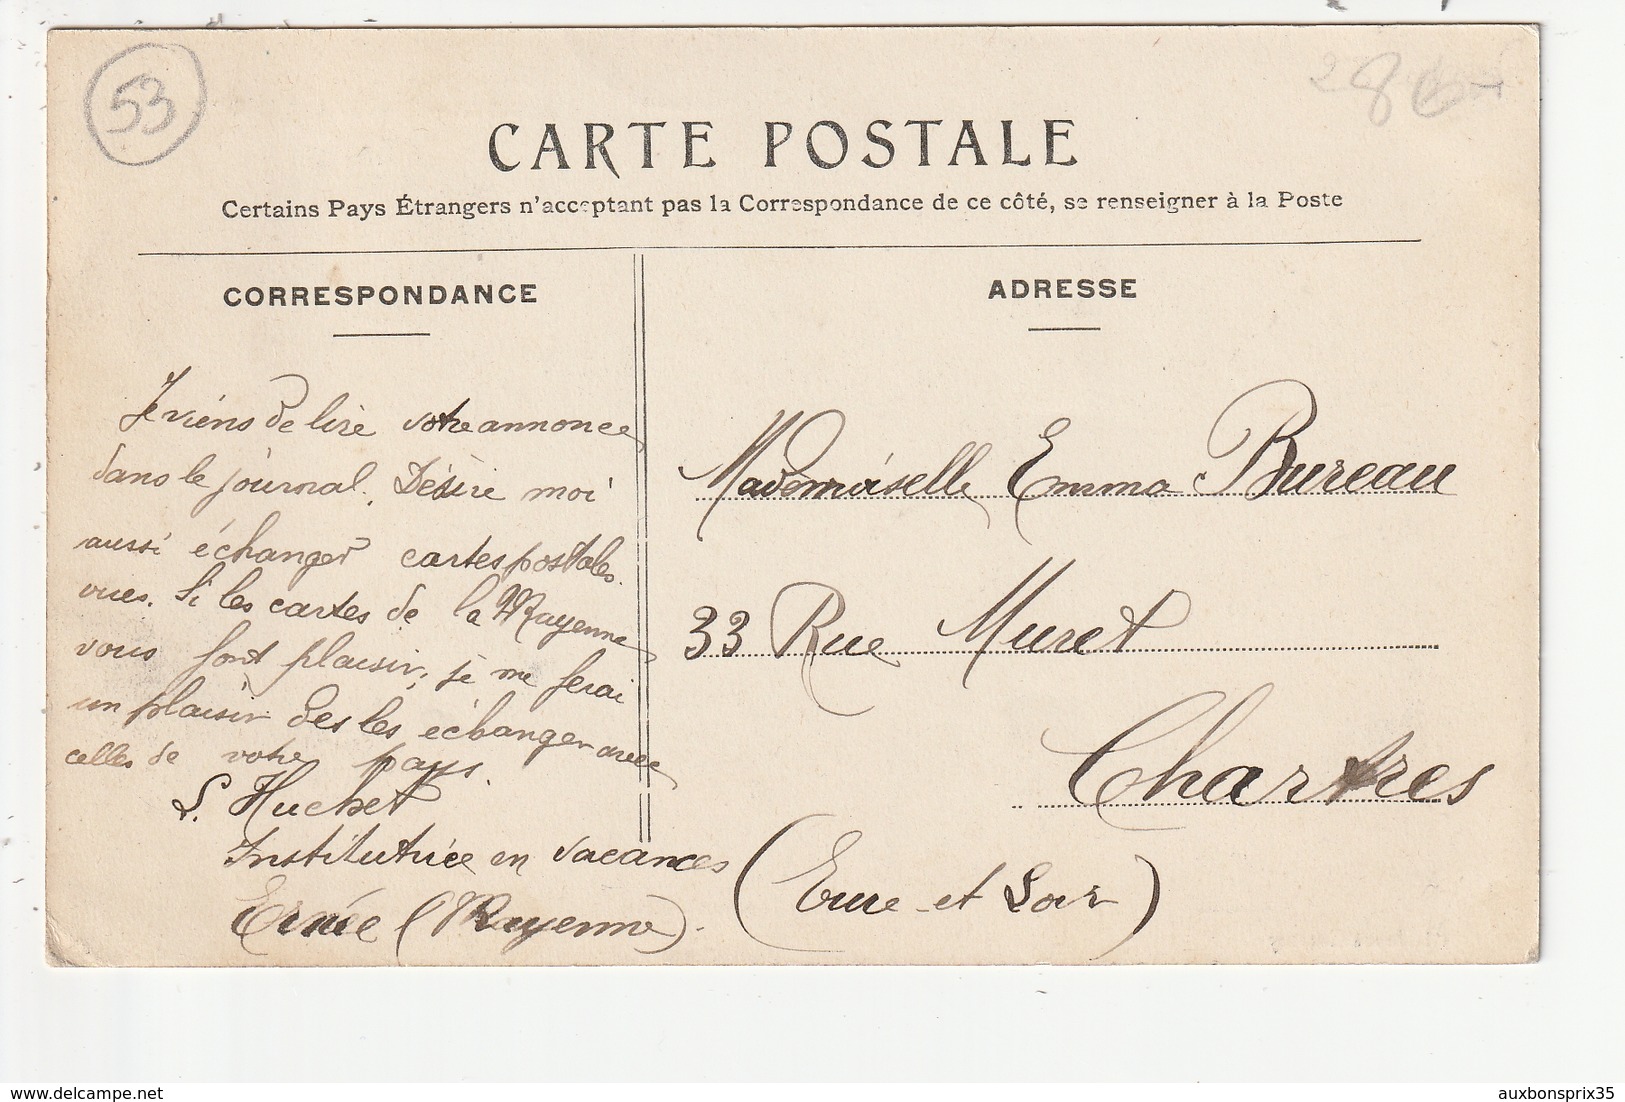 53
CARTE POSTALE
Certains Pays Étrangers n'acceptant pas la Correspondance de ce côté, se renseigner à la Poste
CORRESPONDANCE
Je viens de lire votre annonce
dans le journal. Désire moi
aussi échanger cartes postales
vues. Si les cartes de la Mayenne
vous font plaisir, je me ferai
un plaisir des les échanger avec
celles de votre pays.
L. Huchet
Institutrice en vacances
Ernée (Mayenne).
ADRESSE
Mademoiselle Emma Bureau
33 Rue Muret
Chartres
(Eure-et Loir)
delcampe.net
auxbonsprix35